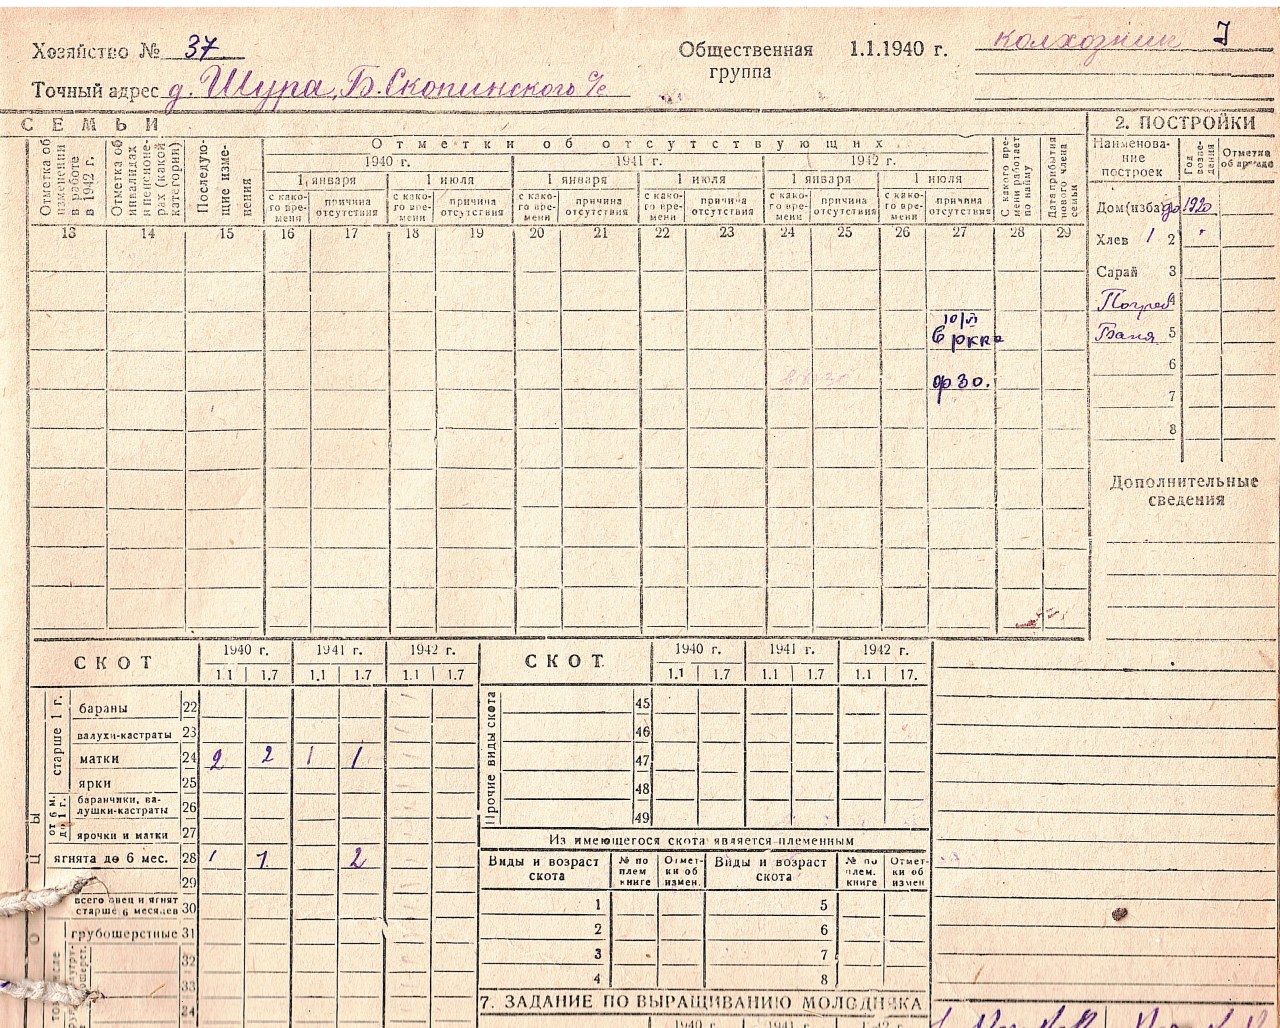 Хозяйство № 37
Общественная группа 1.1.1940 г. колхозник I
Точный адрес д. Шура, Б. Скопинского с/с
СЕМЬИ
2. ПОСТРОЙКИ
Отметка об изменении в работе в 1942 г.
Отметка об инвалидах и пенсионерах (какой категории)
Последующие изменения
Отметки об отсутствующих
1940 г. 1941 г. 1942 г.
1 января 1 июля 1 января 1 июля 1 января 1 июля
с како-го вре-мени причина отсутствия с како-го вре-мени причина отсутствия с како-го вре-мени причина отсутствия с како-го вре-мени причина отсутствия с како-го вре-мени причина отсутствия с како-го вре-мени причина отсутствия
С какого вре-мени работает по найму
Дата прибытия нового члена семьи
Наименова-ние построек
Год возве-дения
Отметка об аренде
13 14 15 16 17 18 19 20 21 22 23 24 25 26 27 28 29
Дом (изба) до 1920
Хлев 1 2 "
Сарай 3
Погреб 4
10/VI
в ркка
Баня 5
6
фзо.
7
8
Дополнительные сведения
СКОТ
1940 г. 1941 г. 1942 г.
1.1 1.7 1.1 1.7 1.1 1.7
старше 1 г.
бараны 22
валухи-кастраты 23
матки 24 2 2 1 1
ярки 25
от 6 м. до 1 г.
баранчики, ва-лушки-кастраты 26
ярочки и матки 27
ягнята до 6 мес. 28 1 1 2
29
всего овец и ягнят старше 6 месяцев 30
грубошерстные 31
32
33
34
СКОТ
1940 г. 1941 г. 1942 г.
1.1 1.7 1.1 1.7 1.1 17.
Прочие виды скота
45
46
47
48
49
Из имеющегося скота является племенным
Виды и возраст скота № по плем книге Отмет-ки об измен. Виды и возраст скота № по плем. книге Отмет-ки об измен
1 5
2 6
3 7
4 8
7. ЗАДАНИЕ ПО ВЫРАЩИВАНИЮ МОЛОДНЯКА
1940 г. 1941 г. 1942 г.